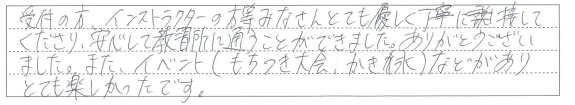 受付の方、インストラクターの方等みなさんとても優しく丁寧に接して
くださり、安心して教習所に通うことができました。ありがとうござい
ました。また、イベント(もちつき大会、かき氷)などがあり
とても楽しかったです。